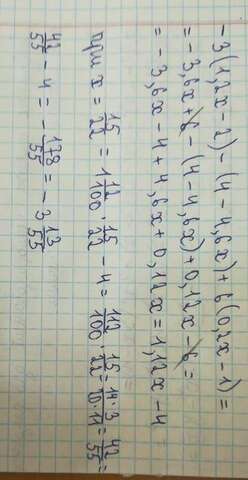 -3(1,2x-2)-(4-4,6x)+6(0,2x-1)=
=-3,6x+6-(4-4,6x)+0,12x-6=
=-3,6x-4+4,6x+0,12x=1,12x-4
при x = 15/22 = 1 12/100 · 15/22 - 4 = 112/100 · 15/22 = 14·3/10·11 = 42/55 =
42/55 - 4 = - 178/55 = -3 13/55